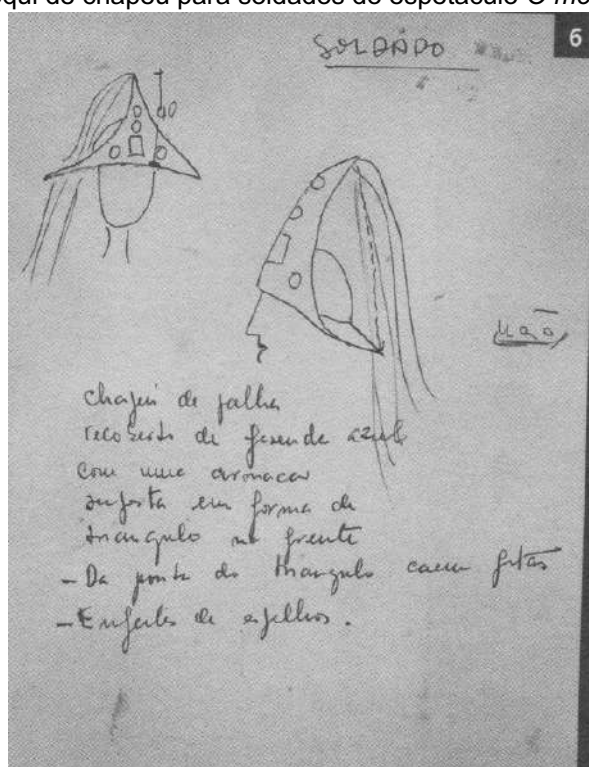 qui de chapéu para soldados do espetáculo O
6
SOLDADO
não
chapéu de palha
recoberto de fazenda azul
com uma armacao
suposta em forma de
triangulo na frente
- Da ponta do triangulo caem fitas
- Enfeites de espelhos.